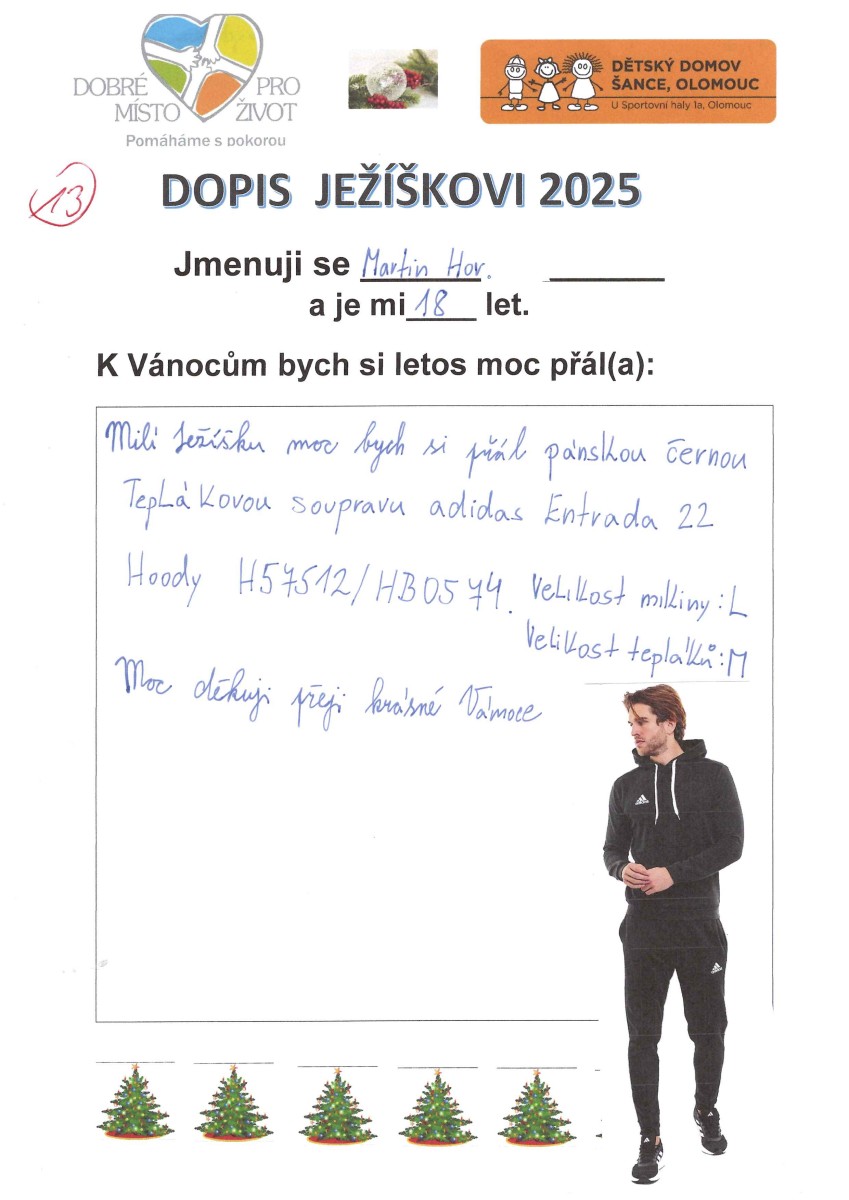 DOBRÉ PRO
MÍSTO ŽIVOT
Pomáháme s pokorou
DĚTSKÝ DOMOV
ŠANCE, OLOMOUC
U Sportovní haly 1a, Olomouc
13
DOPIS JEŽÍŠKOVI 2025
Jmenuji se Martin Hor.
a je mi 18 let.
K Vánocům bych si letos moc přál(a):
Milí Ježíšku moc bych si přál pánskou černou
Teplákovou soupravu adidas Entrada 22
Hoody H57512/HB0574. Velikost mikiny: L
Velikost tepláků: M
Moc děkuji přeji krásné Vánoce
adidas